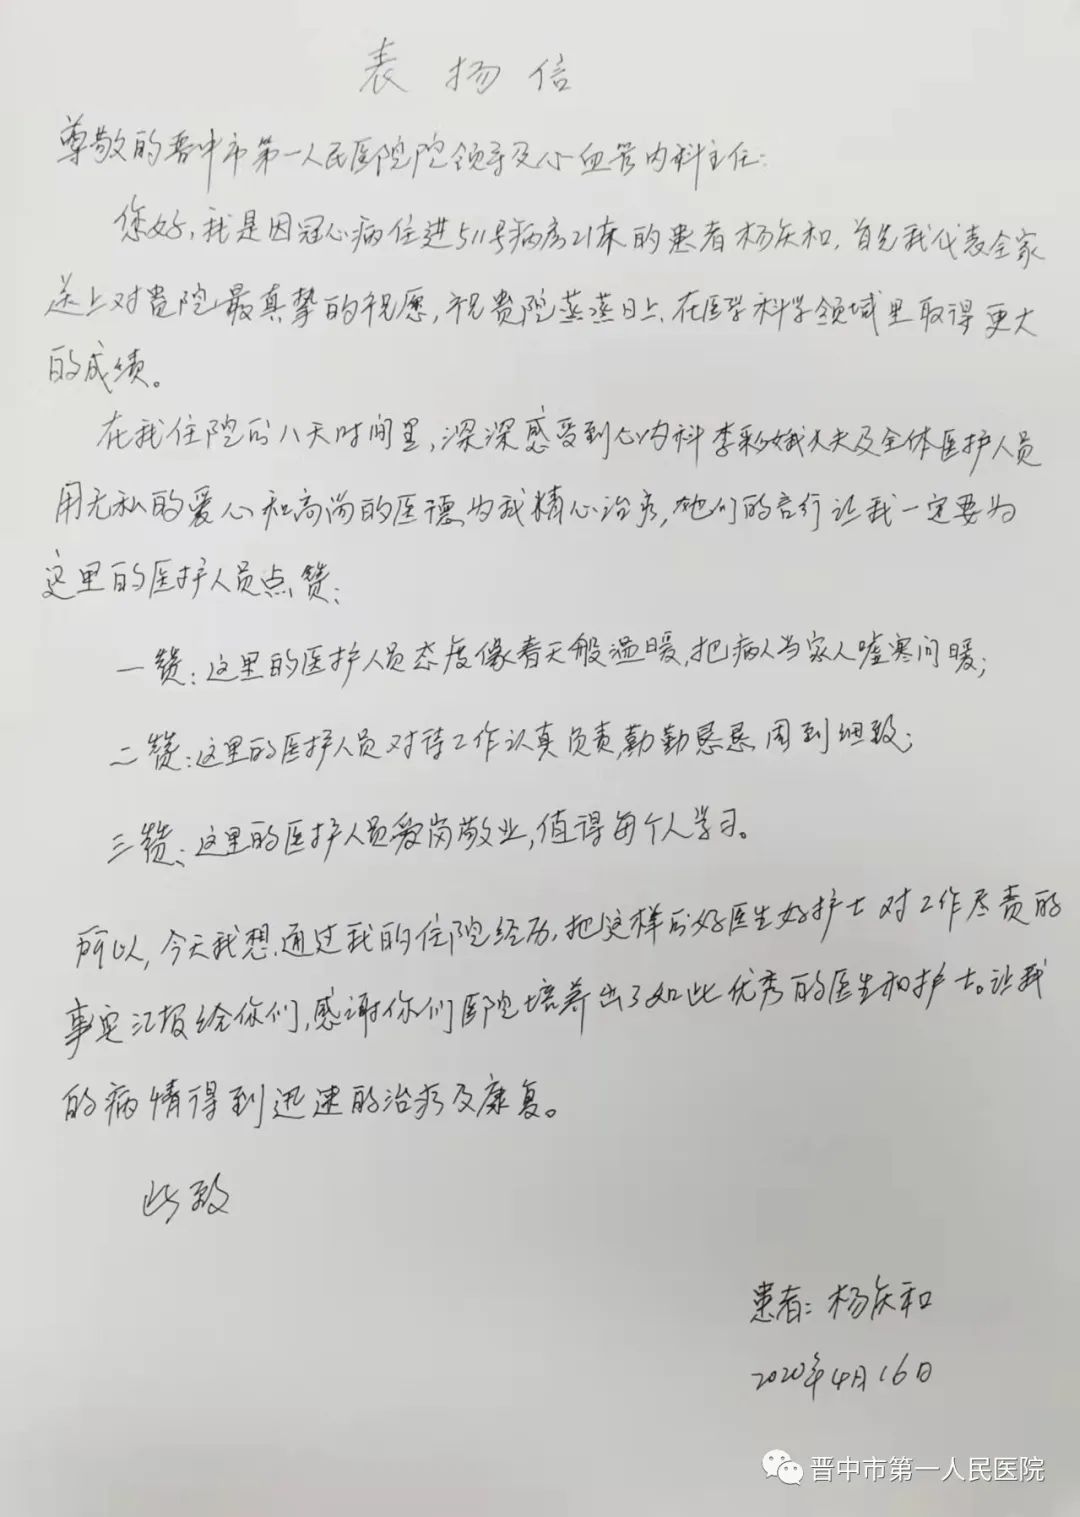 表扬信
尊敬的晋中市第一人民医院院领导及心血管内科主任：
您好，我是因冠心病住进511号病房21床的患者杨庆和，首先我代表全家
送上对贵院最真挚的祝愿，祝贵院蒸蒸日上，在医学科学领域里取得更大
的成绩。
在我住院的八天时间里，深深感受到心内科李彩娥大夫及全体医护人员
用无私的爱心和高尚的医德为我精心治疗，她们的言行让我一定要为
这里的医护人员点赞：
一赞：这里的医护人员态度像春天般温暖，把病人当家人嘘寒问暖；
二赞：这里的医护人员对待工作认真负责，勤勤恳恳，周到细致；
三赞：这里的医护人员爱岗敬业，值得每个人学习。
所以，今天我想通过我的住院经历，把这样的好医生好护士对工作尽责的
事实汇报给你们，感谢你们医院培养出了如此优秀的医生和护士。让我
的病情得到迅速的治疗及康复。
此致
患者：杨庆和
2020年4月16日
晋中市第一人民医院